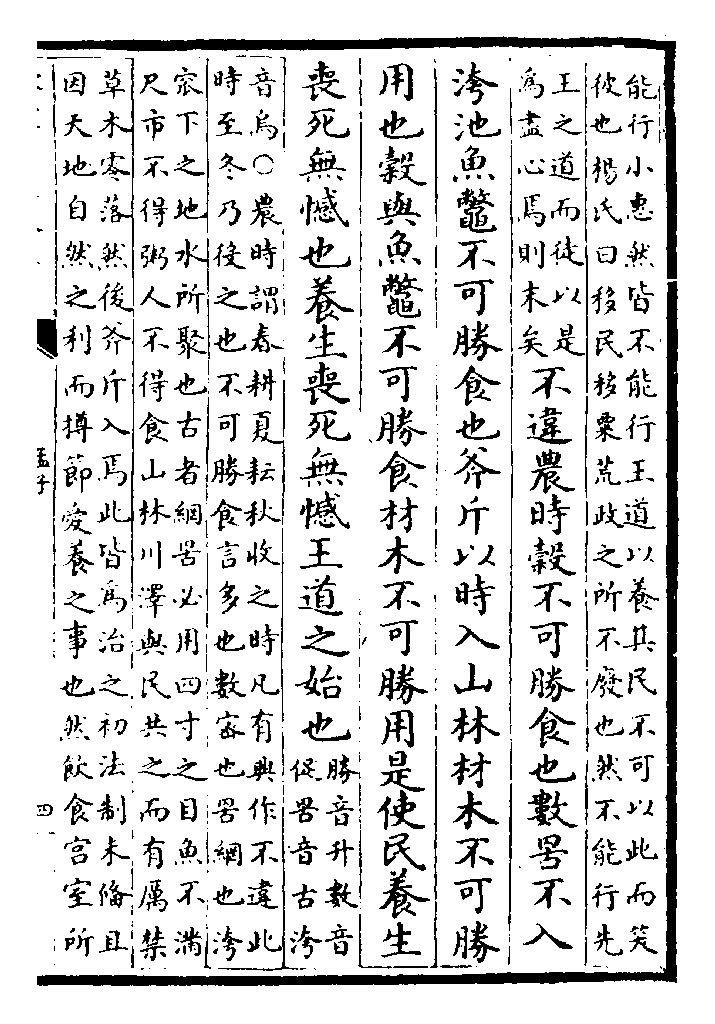 能行小惠然皆不能行王道以養其民不可以此而笑
彼也楊氏曰移民移粟荒政之所不廢也然不能行先
王之道而徒以是
為盡心焉則末矣
不違農時穀不可勝食也數罟不入
洿池魚鼈不可勝食也斧斤以時入山林材木不可勝
用也穀與魚鼈不可勝食材木不可勝用是使民養生
喪死無憾也養生喪死無憾王道之始也
勝音升數音
促罟音古洿
音烏○農時謂春耕夏耘秋收之時凡有興作不違此
時至冬乃役之也不可勝食言多也數宻也罟網也洿
窊下之地水所聚也古者網罟必用四寸之目魚不滿
尺市不得粥人不得食山林川澤與民共之而有厲禁
草木零落然後斧斤入焉此皆為治之初法制未備且
因天地自然之利而撙節愛養之事也然飲食宫室所
孟子
四